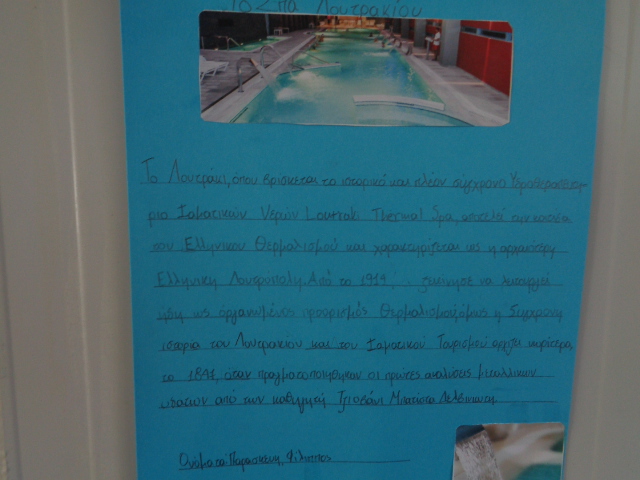 Το Σπα Λουτρακίου
Το Λουτράκι, όπου βρίσκεται το ιστορικό και πλέον σύγχρονο Υδροθεραπευτή-
ριο Ιαματικών Νερών Loutraki Thermal Spa, αποτελεί την κοιτίδα
του Ελληνικού Θερμαλισμού και χαρακτηρίζεται ως η αρχαιότερη
Ελληνική Λουτρόπολη. Από το 1914, ξεκίνησε να λειτουργεί
ήδη ως οργανωμένος προορισμός Θερμαλισμού, όμως η Σύγχρονη
ιστορία του Λουτρακίου και του Ιαματικού Τουρισμού αρχίζει νωρίτερα,
το 1847, όταν πραγματοποιήθηκαν οι πρώτες αναλύσεις μεταλλικών
υδάτων από τον καθηγητή Τζιοβάνι Μπατίστα
Ονόματα: Παρασκευή, Φίλιππος